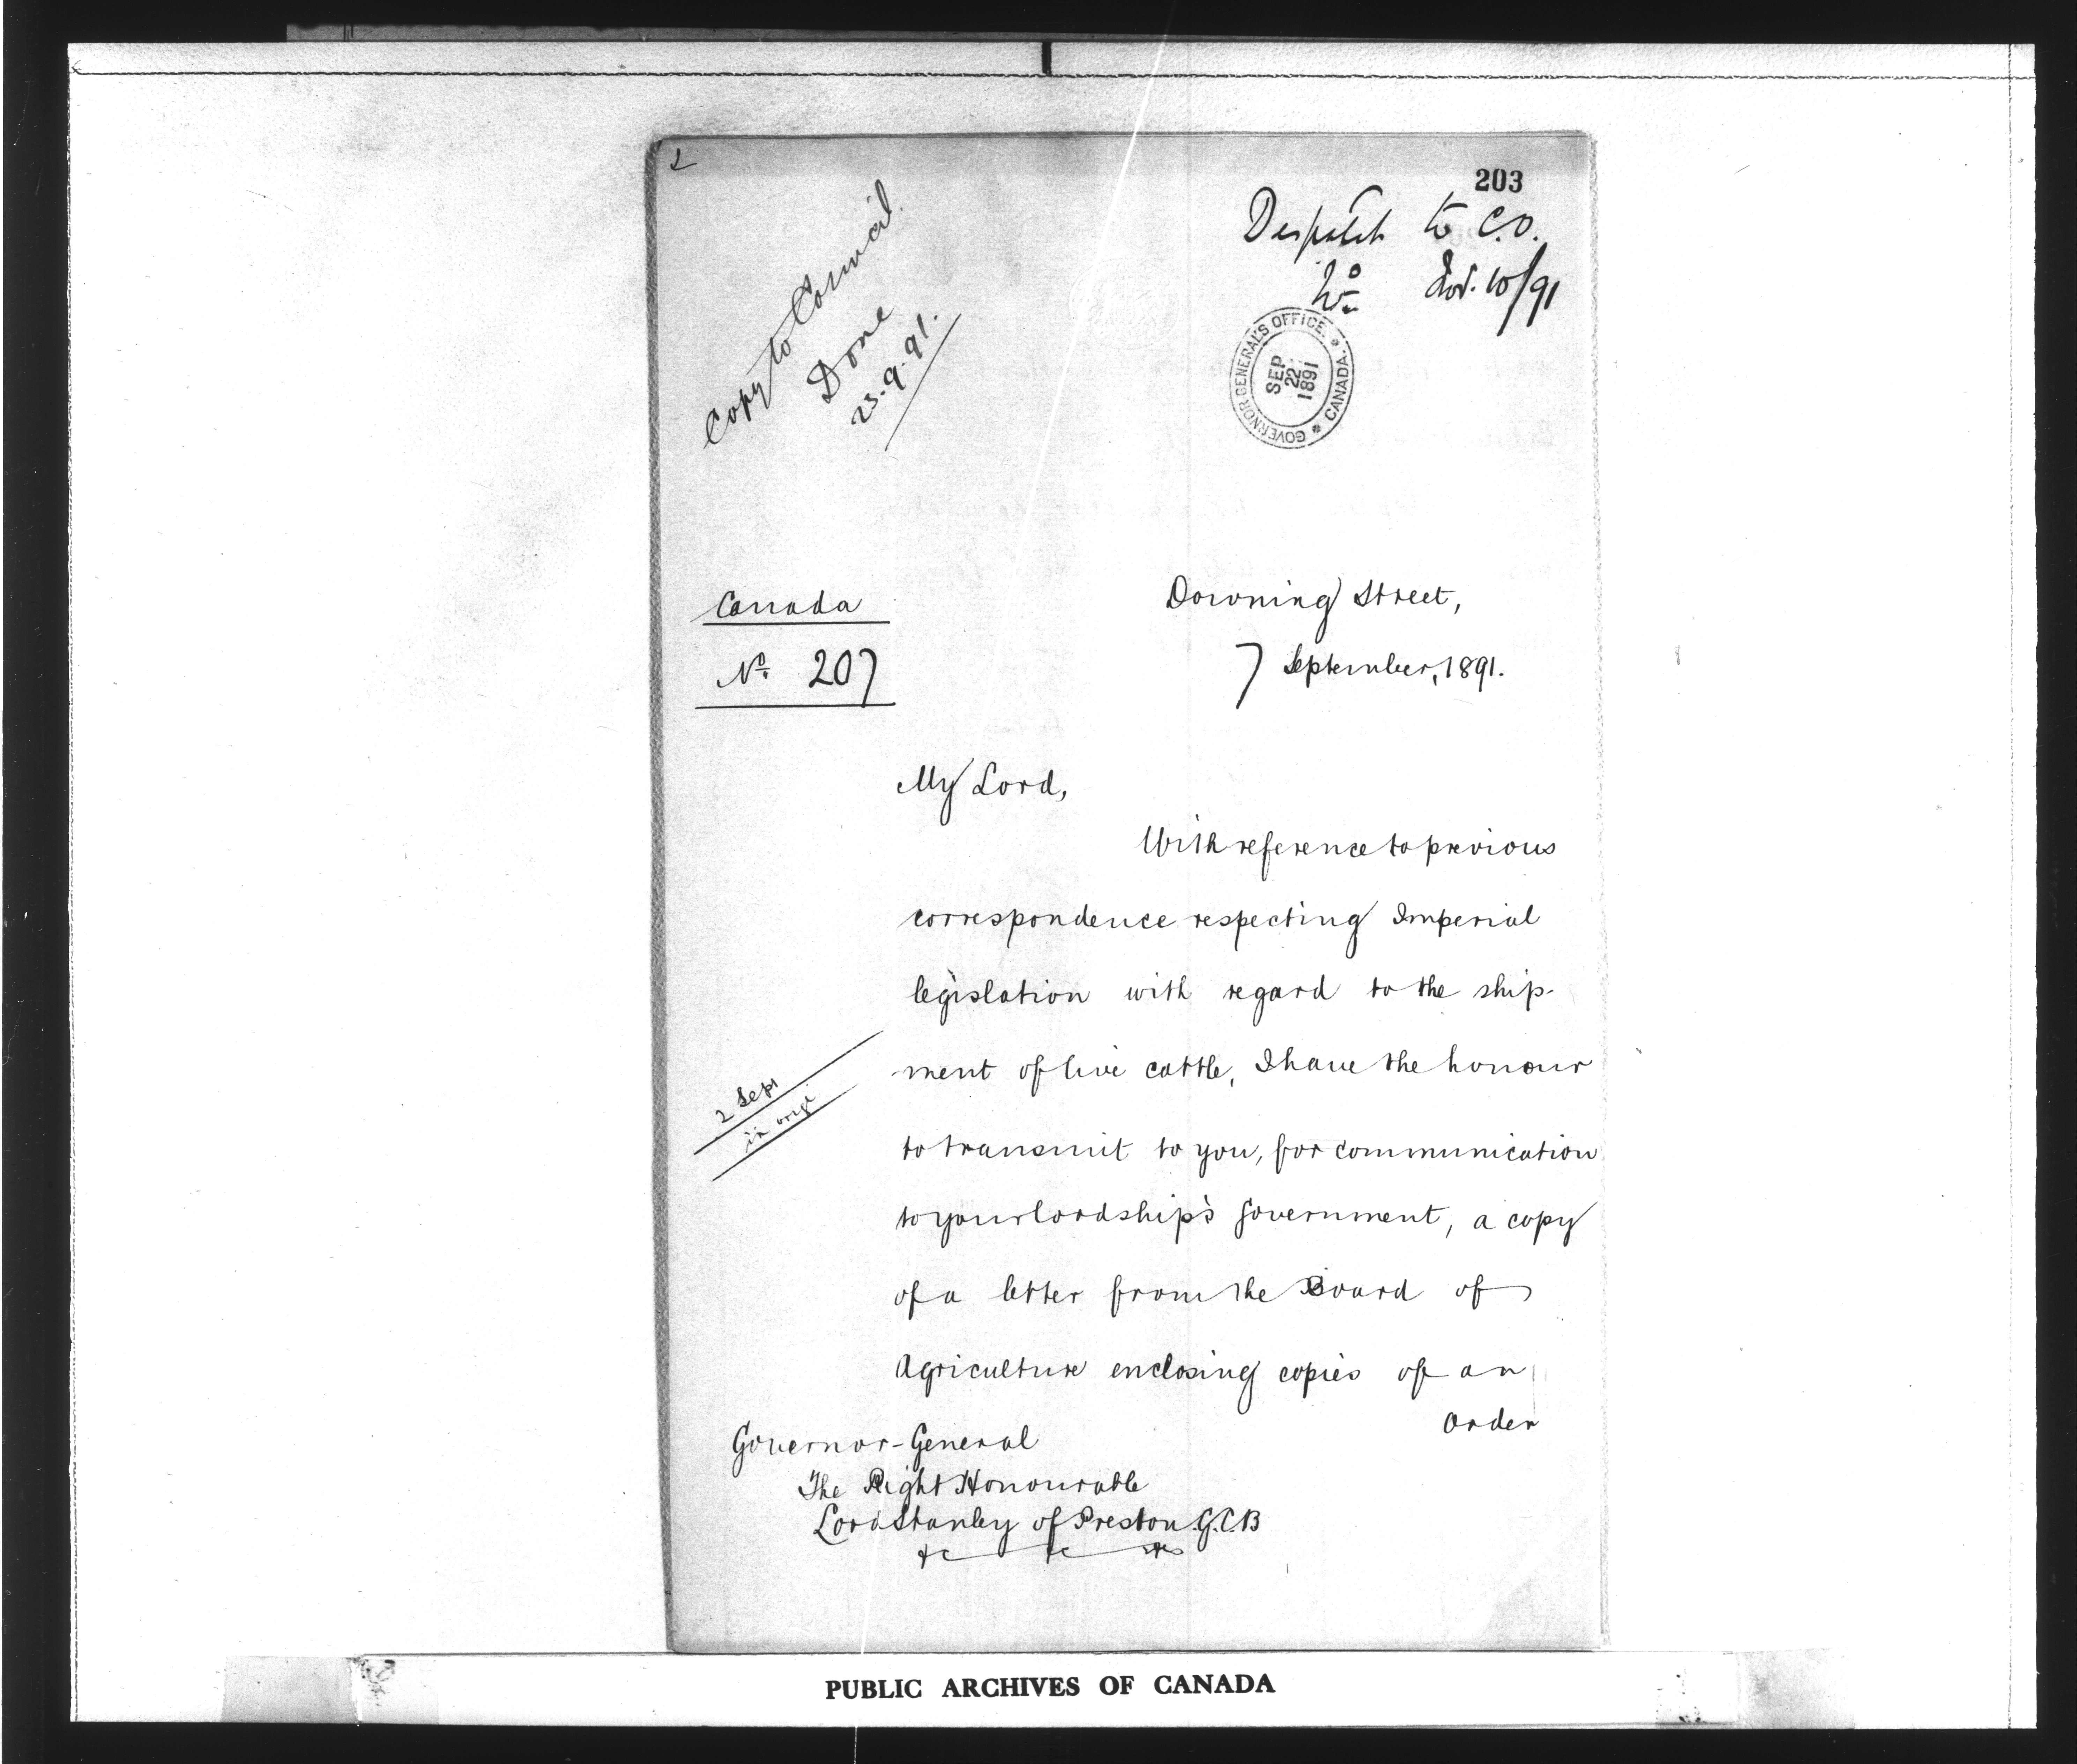 203
Despatch to C.O.
No Nov. 10/91
Copy to Council.
Done
23.9.91.
GOVERNOR GENERAL'S OFFICE.
CANADA.
SEP
22
1891
Canada
No. 207
Downing Street,
7 September, 1891.
My Lord,
With reference to previous
correspondence respecting Imperial
legislation with regard to the ship-
ment of live cattle, I have the honour
2 Sept
in orig
to transmit to you, for communication
to your lordship's Government, a copy
of a letter from the Board of
Agriculture enclosing copies of an
Order
Governor-General
The Right Honourable
Lord Stanley of Preston G.C.B
&c &c &c
PUBLIC ARCHIVES OF CANADA